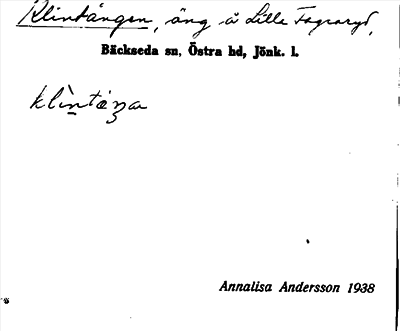 Klintängen, äng å Lille Fagraryd,
Bäckseda sn, Östra hd, Jönk. l.
Annalisa Andersson 1938